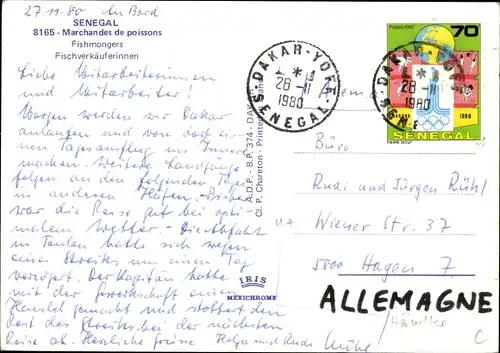 27.11.80 An Bord
SENEGAL
8165 - Marchandes de poissons
Fishmongers
Fischverkäuferinnen
Liebe Mitarbeiterinnen
und Mitarbeiter!
Morgen werden wir Dakar
anlaufen und von dort ei-
nen Tagesausflug ins Innere
machen. Weitere Landgänge
folgen an den folgenden Tagen
in anderen Häfen. Bisher
war die Reise gut bei opti-
malem Wetter. Die Abfahrt
in Toulon hatte sich wegen
eines Streiks um einen Tag
verzögert. Der Kapitän hatte
mit der Gewerkschaft einen
Handel gemacht und stottert den
Rest des Streiks bei der nächsten
Reise ab. Herzliche Grüsse Helga und Rudi Rühl
A.D.P. - B.P. 374 - DAKAR
Cl. P. Chareton - Printed
IRIS
MEXICHROME
DAKAR-YOFF
28-11
1980
SENEGAL
DAKAR-YOFF
28-11
1980
Postes 1980
70
1980
SENEGAL
Firma
Büro
Rudi und Jürgen Rühl
Wiener Str. 37
5800 Hagen 7.
ALLEMAGNE
Händler
C